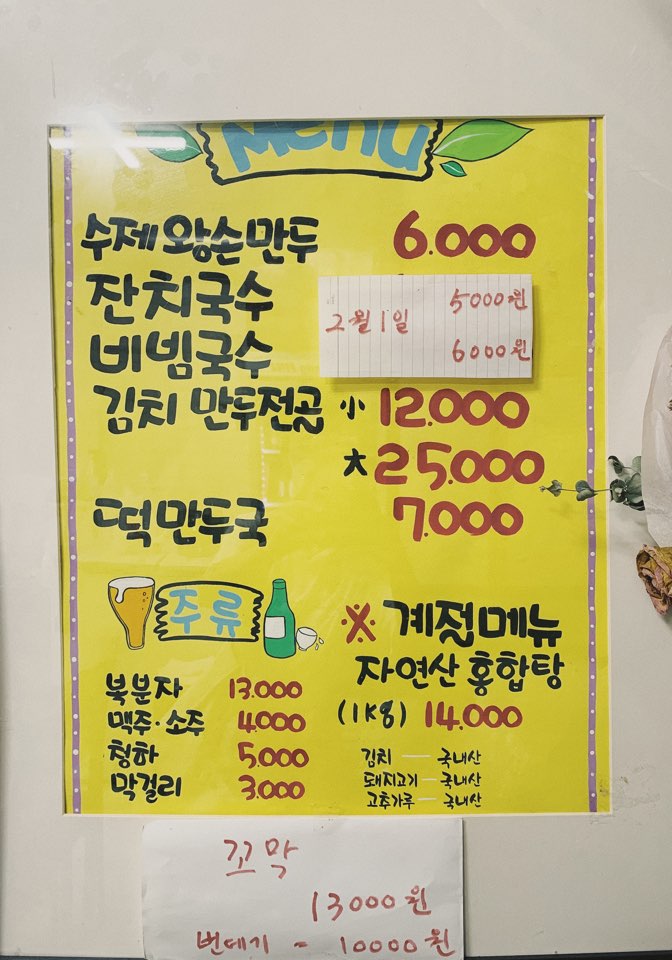 Menu
수제 왕손만두 6.000
잔치국수 5000원
2월 1일
비빔국수 6000원
김치 만두전골 小 12.000
大 25.000
떡만두국 7.000
주류
※ 계절메뉴
자연산 홍합탕
(1kg) 14.000
북분자 13.000
맥주·소주 4.000
청하 5.000
막걸리 3.000
김치 — 국내산
돼지고기 — 국내산
고추가루 — 국내산
꼬막
13000원
번데기 - 10000원